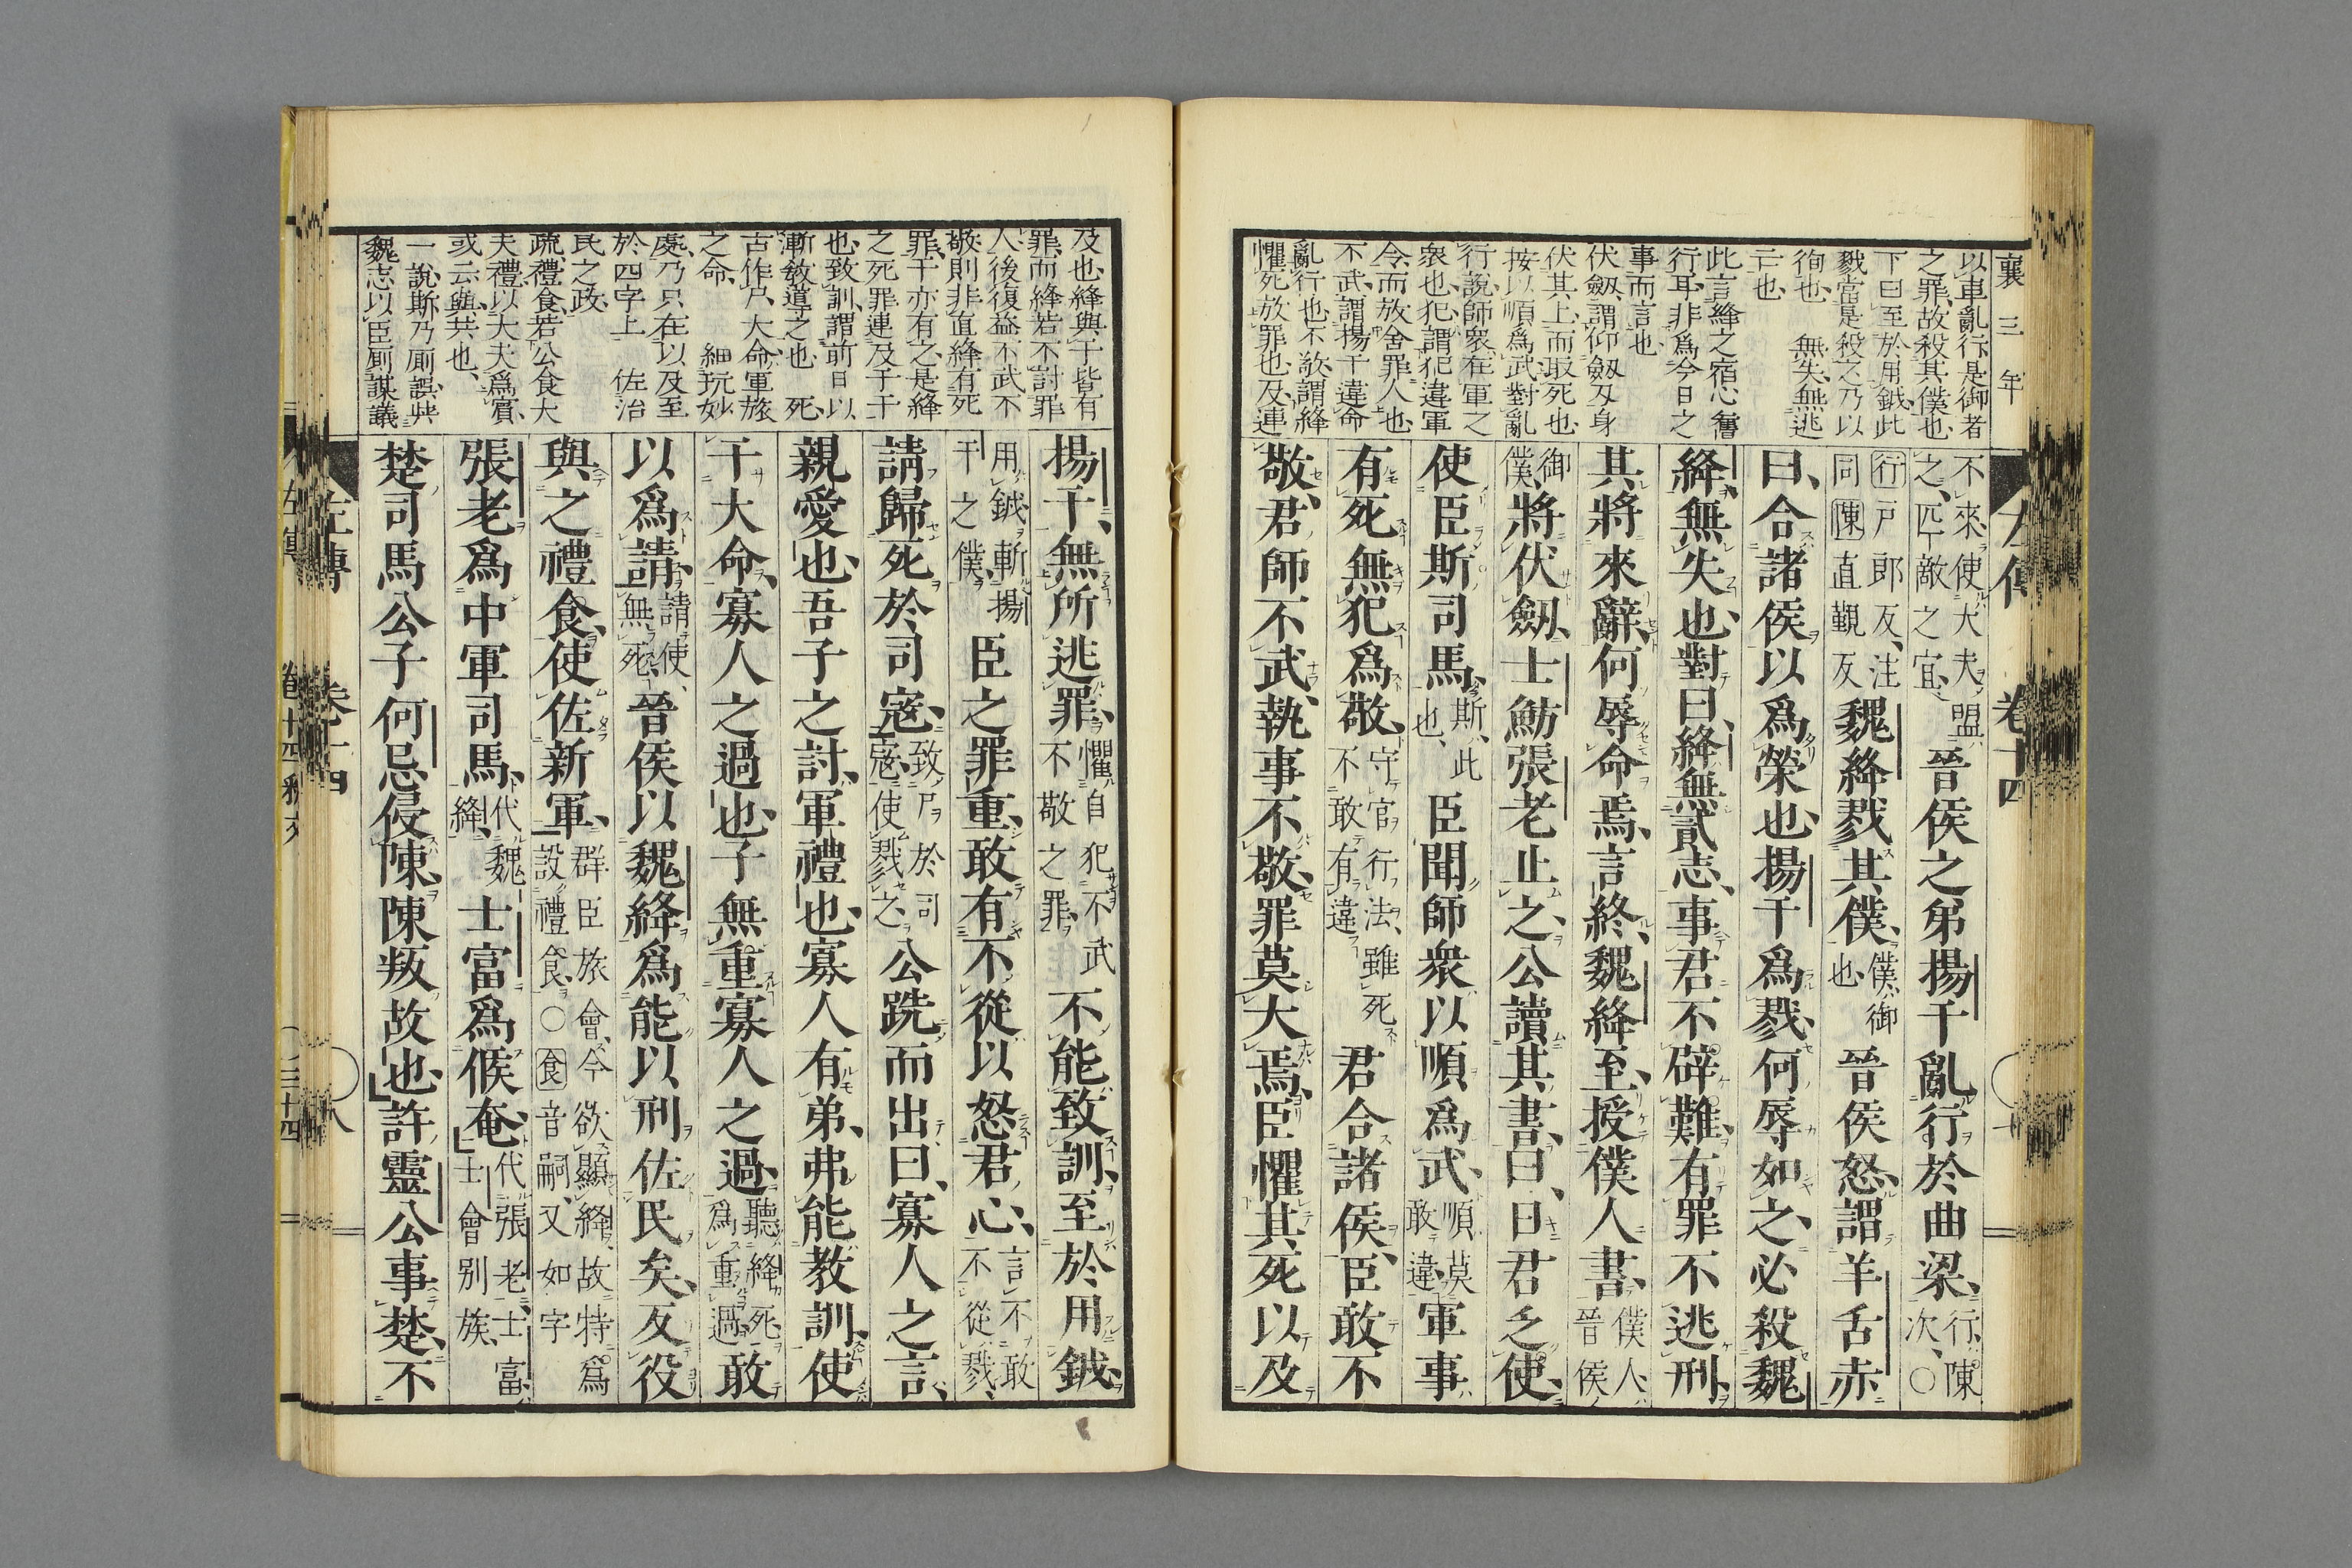 襄三年
以車亂行是御者
之罪故殺其僕也
下曰至於用鉞此
戮當是殺之乃以
徇也　無失無逃
二也
此言絳之宿心舊
行耳非爲今日之
事而言也
伏劔謂仰劔刄身
伏其上而取死也
按以順爲武對亂
行說師衆在軍之
衆也犯謂犯違軍
令而放舍罪人也
不武謂揚干違命
亂行也不敬謂絳
懼死放罪也及連
左傳　卷十四
不來使大夫盟
之匹敵之宜
晉侯之弟揚干亂行於曲梁
行陳
次○
行戶郎反注
同陳直覲反
魏絳戮其僕
僕御
也
晉侯怒謂羊舌赤
曰合諸侯以爲榮也揚干爲戮何辱如之必殺魏
絳無失也對曰絳無貳志事君不辟難有罪不逃刑
其將來辭何辱命焉言終魏絳至授僕人書
僕人
晉侯
御
僕
將伏劔士魴張老止之公讀其書曰日君乏使
使臣斯司馬
斯此
也
臣聞師衆以順爲武
順莫
敢違
軍事
有死無犯爲敬
守官行法雖死
不敢有違
君合諸侯臣敢不
敬君師不武執事不敬罪莫大焉臣懼其死以及
及也絳與干皆有
罪而絳若不討罪
人後復益不武不
敬則非直絳有死
罪干亦有之是絳
之死罪連及于干
也致訓謂前日以
漸敎導之也　死
古作尸大命軍旅
之命　細玩妙
處乃只在以及至
於四字上　佐治
民之政
疏禮食若公食大
夫禮以大夫爲賓
或云與共也
一說斯乃厮誤此
魏志以臣厮謀議
揚干無所逃罪
懼自犯不武
不敬之罪
不能致訓至於用鉞
用鉞斬揚
干之僕
臣之罪重敢有不從以怒君心
言不敢
不從戮
請歸死於司寇
致尸於司
寇使戮之
公跣而出曰寡人之言
親愛也吾子之討軍禮也寡人有弟弗能敎訓使
干大命寡人之過也子無重寡人之過
聽絳死
爲重過
敢
以爲請
請使
無死
晉侯以魏絳爲能以刑佐民矣反役
與之禮食使佐新軍
群臣旅會今欲顯絳故特爲
設禮食○食音嗣又如字
張老爲中軍司馬
代魏
絳
士富爲候奄
代張老士富
士會别族
楚司馬公子何忌侵陳陳叛故也許靈公事楚不
左傳　卷十四　八